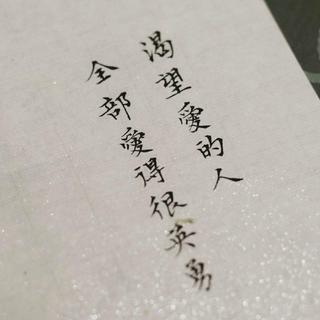 渴望愛的人
全部愛得很英勇